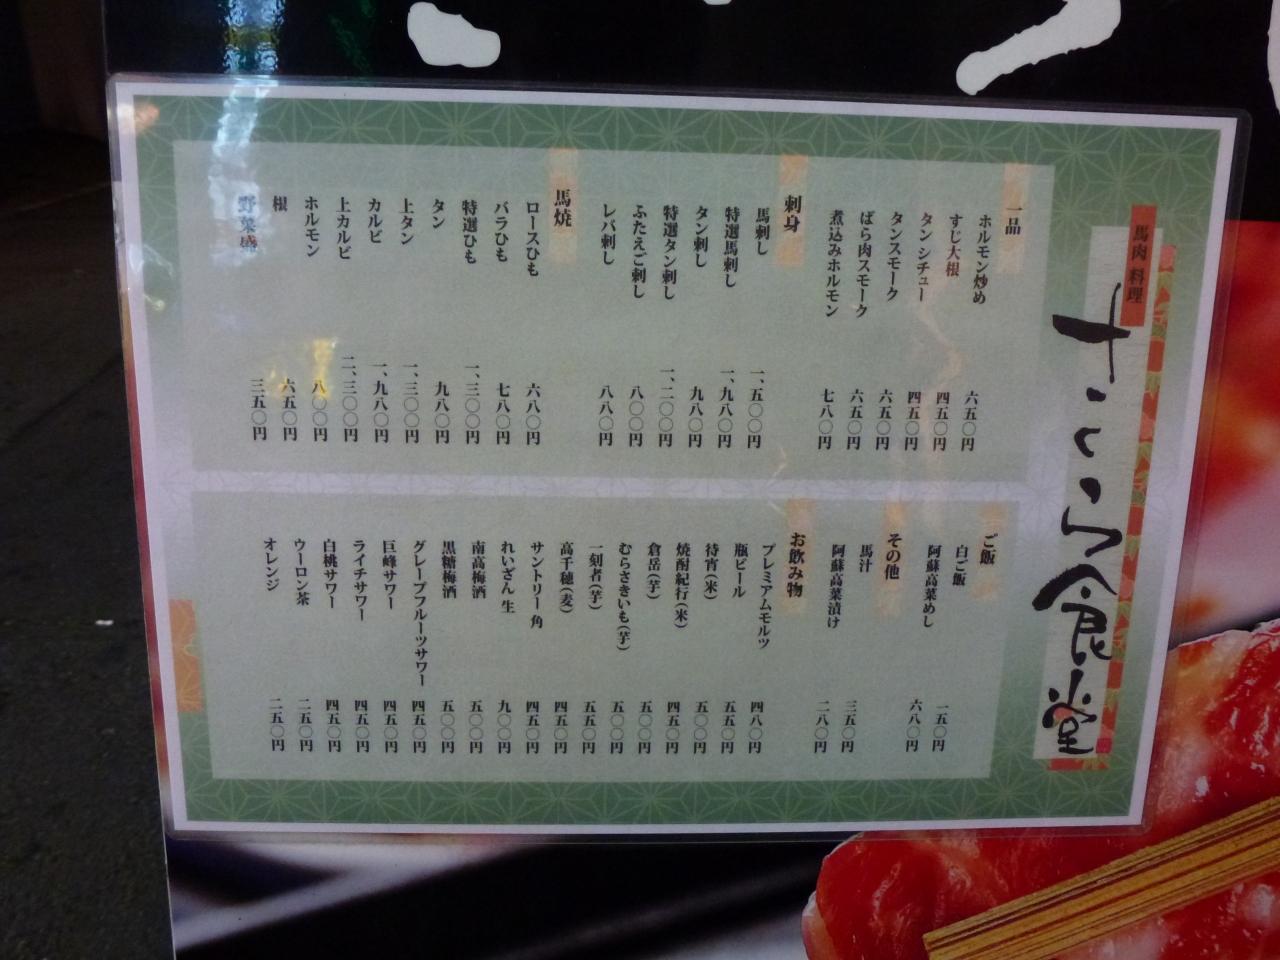 馬肉 料理
さくら食堂
一品
ホルモン炒め 六五〇円
すじ大根 四五〇円
タンシチュー 四五〇円
タンスモーク 六五〇円
ばら肉スモーク 六五〇円
煮込みホルモン 七八〇円
刺身
馬刺し 一、五〇〇円
特選馬刺し 一、九八〇円
タン刺し 九八〇円
特選タン刺し 一、二〇〇円
ふたえご刺し 八〇〇円
レバ刺し 八八〇円
馬焼
ロースひも 六八〇円
バラひも 七八〇円
特選ひも 一、三〇〇円
タン 九八〇円
上タン 一、三〇〇円
カルビ 一、九八〇円
上カルビ 二、三〇〇円
ホルモン 八〇〇円
根 六五〇円
野菜盛 三五〇円
ご飯
白ご飯 一五〇円
阿蘇高菜めし 六八〇円
その他
馬汁 三五〇円
阿蘇高菜漬け 二八〇円
お飲み物
プレミアムモルツ 四八〇円
瓶ビール 五五〇円
待宵(米) 五〇〇円
焼酎紀行(米) 四五〇円
倉岳(芋) 五〇〇円
むらさきいも(芋) 五〇〇円
一刻者(芋) 五五〇円
高千穂(麦) 四五〇円
サントリー 角 四五〇円
れいざん 生 九〇〇円
南高梅酒 五〇〇円
黒糖梅酒 五〇〇円
グレープフルーツサワー 四五〇円
巨峰サワー 四五〇円
ライチサワー 四五〇円
白桃サワー 四五〇円
ウーロン茶 二五〇円
オレンジ 二五〇円